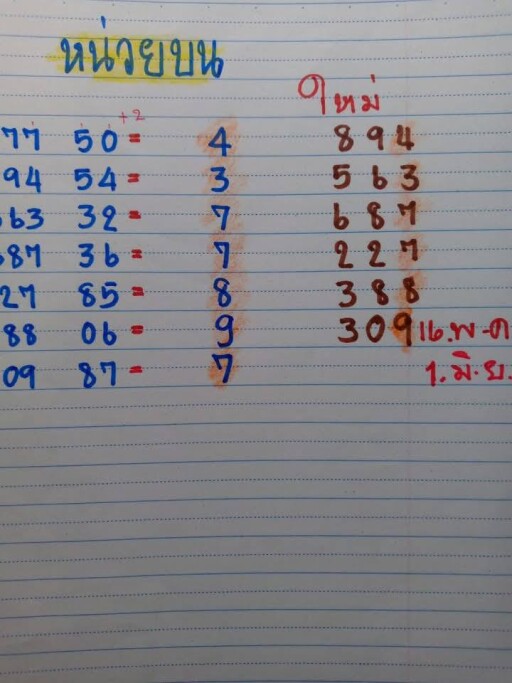 หน่วยบน
ใหม่
+2
77 50 = 4 894
94 54 = 3 563
63 32 = 7 687
87 36 = 7 227
27 85 = 8 388
88 06 = 9 309 16.พ.ค
09 87 = 7 1.มิ.ย.